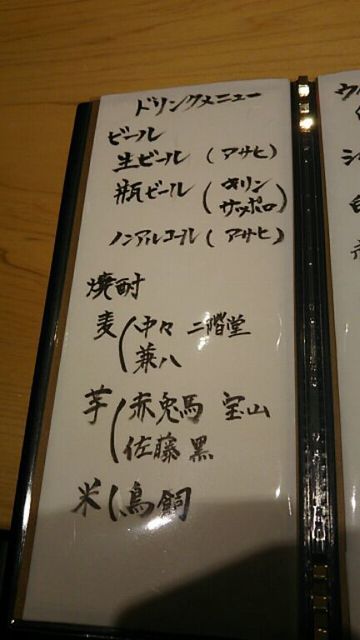 ドリンクメニュー
ビール
生ビール (アサヒ)
瓶ビール (キリン
サッポロ)
ノンアルコール (アサヒ)
焼酎
麦 (中々 二階堂
兼八
芋 (赤兎馬 宝山
佐藤 黒
米 (鳥飼
ウイ